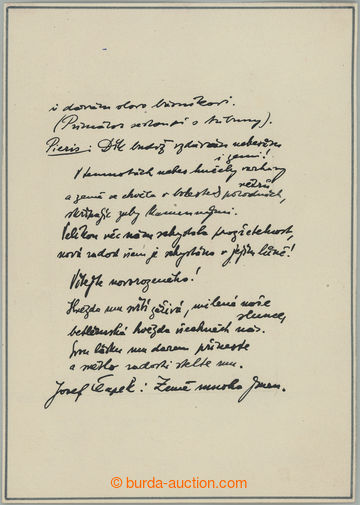 i dávám slovo básníkovi.
(Primátor sestoupí s tribuny).
Pieris: Dík budiž vzdáván nebesům
i zemi!
V temnotách nebes hučely varhany
větrů
a země se chvěla v bolestech porodních,
skřípajíc zuby kamennými.
Velikou věc nám zchystala prozřetelnost,
nová radost všem je zchystána v jejím lůně!
Vítejte novorozeného!
Hvězda mu svítí zářivá, milená naše
slunce,
betlémská hvězda všechněch nás.
Svou lásku mu darem přineste
a světlo radosti stelte mu.
Josef Čapek: Země mnoha jmen.
© burda-auction.com